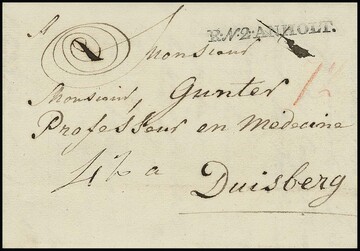 R.N.2.ANHOLT.
A Monsieur
Monsieur, Gunter
Professeur en Medecine
a
Duisberg